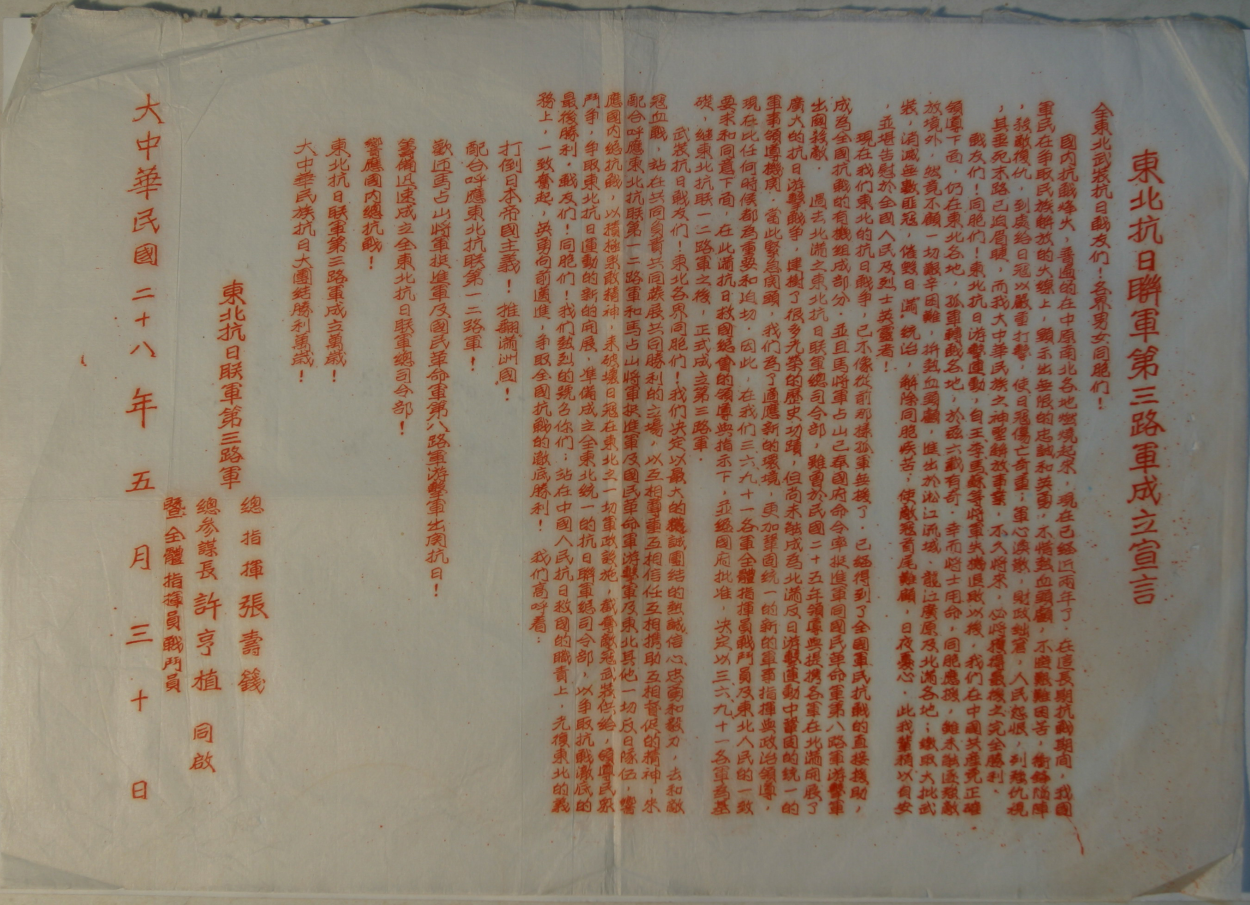 東北抗日聯軍第三路軍成立宣言
全東北武裝抗日戰友們！各界男女同胞們！
國內抗戰烽火，普遍的在中原南北各地燃燒起來，現在已經近兩年了。在這長期抗戰期間，我國
軍民在爭取民族解放的大纛上，顯示出無限的忠誠和英勇，不惜熱血頭顱，不避艱難困苦，衝鋒陷陣
，我敵復仇，到處給日寇以嚴重打擊，使日寇傷亡奇重，軍心渙散，財政拮窘，人民怨恨，到處仇視
，其垂死末路已迫眉睫，而我大中華民族之神聖解放事業，不久將來，必將獲得最後之完全勝利。
戰友們！同胞們！東北抗日游擊運動，自王李馬蘇等將軍失敗退敗以後，我們在中國共產黨正確
領導下面，仍在東北各地，孤軍轉戰各地，於茲六載有奇，幸而將士用命，同胞應援，雖未能逐敵
放境外，然竟不顧一切艱辛困難，拚熱血頭顱，進出於淞江流域，龍江廣原及北滿各地；繳取大批武
裝，消滅無數匪寇，催毀日滿統治，解除同胞疾苦，使敵寇首尾難顧，日夜憂心，此我輩稍以自安
，並堪告慰於全國人民及烈士英靈者！
現在我們東北的抗日戰爭，已不像從前那樣孤軍無援了，已經得到了全國軍民抗戰的直接援助，
成為全國抗戰的有機組成部分，並且馬將軍占山已奉國府命令率挺進軍同國民革命軍第八路軍游擊軍
出關殺敵。過去北滿之東北抗日聯軍總司令部，雖曾於民國二十五年領導與提携各軍在北滿開展了
廣大的抗日游擊戰爭，建樹了很多光榮的歷史功蹟，但尚未能成為北滿反日游擊運動中鞏固的統一的
軍事領導機関，當此緊急関頭，我們為了適應新的環境，更加鞏固統一的新的軍事指揮與政治領導，
現在比任何時候都為重要和迫切，因此，在我們三六九十一各軍全體指揮員戰鬥員及東北人民的一致
要求和同意下面，在北滿抗日救國總會的領導與指示下，並經國府批准，決定以三六九十一各軍為基
礎，繼東北抗联一二路軍之後，正式成立第三路軍。
武裝抗日戰友們！東北各界同胞們！我們決定以最大的熱誠團結的熱誠信心忠勇和毅力，去和敵
寇血戰，站在共同負責共同發展共同勝利的立場，以互相尊重互相信任互相携助互相督促的精神，來
配合呼應東北抗联第一二路軍和馬占山將軍挺進軍及國民革命軍游擊軍及東北其他一切反日隊伍，響
應國內總抗戰，以積極與敵精神，來破壞日寇在東北之一切軍政設施，截奪敵寇武裝供給，領導民眾
鬥爭，爭取東北抗日運動的新的開展，準備成立全東北統一的抗日聯軍總司令部，以爭取抗戰澈底的
最後勝利。戰友們！同胞們！我們熱烈的號召你們：站在中國人民抗日救國的職責上，光復東北的義
務上，一致奮起，英勇向前邁進，爭取全國抗戰的澈底勝利！我們高呼着：
打倒日本帝國主義！推翻滿洲國！
配合呼應東北抗联第一二路軍！
歡迎馬占山將軍挺進軍及國民革命軍第八路軍游擊軍出関抗日！
籌備迅速成立全東北抗日联軍總司令部！
響應國內總抗戰！
東北抗日联軍第三路軍成立萬歲！
大中華民族抗日大團結勝利萬歲！
東北抗日联軍第三路軍
總指揮張壽籛
總參謀長許亨植 同啟
暨全體指揮員戰鬥員
大中華民國二十八年五月三十日